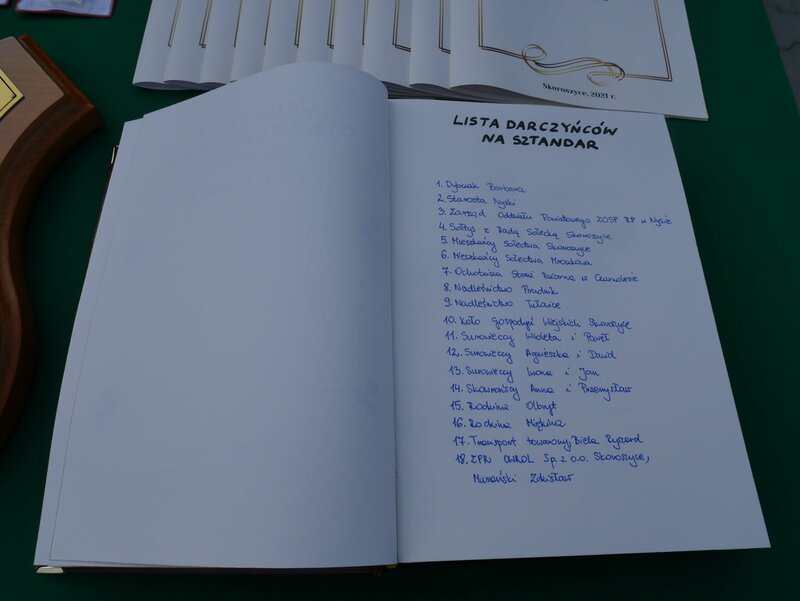 Skoroszyce, 2021 r.
LISTA DARCZYŃCÓW
NA SZTANDAR
1. Dybciak Barbara
2. Starosta Nyski
3. Zarząd Oddziału Powiatowego ZOSP RP w Nysie
4. Sołtys z Radą Sołecką Skoroszyce
5. Mieszkańcy Sołectwa Skoroszyce
6. Mieszkańcy Sołectwa Mroczkowa
7. Ochotnicza Straż Pożarna w Czarnolesie
8. Nadleśnictwo Prudnik
9. Nadleśnictwo Tułowice
10. Koło Gospodyń Wiejskich Skoroszyce
11. Surowieccy Wioleta i Paweł
12. Surowieccy Agnieszka i Dawid
13. Surowieccy Iwona i Jan
14. Skowrońscy Anna i Przemysław
15. Rodzina Olbryt
16. Rodzina Miękina
17. Transport towarowy, Biela Ryszard
18. Sp. z o.o. Skoroszyce,
Zdzisław